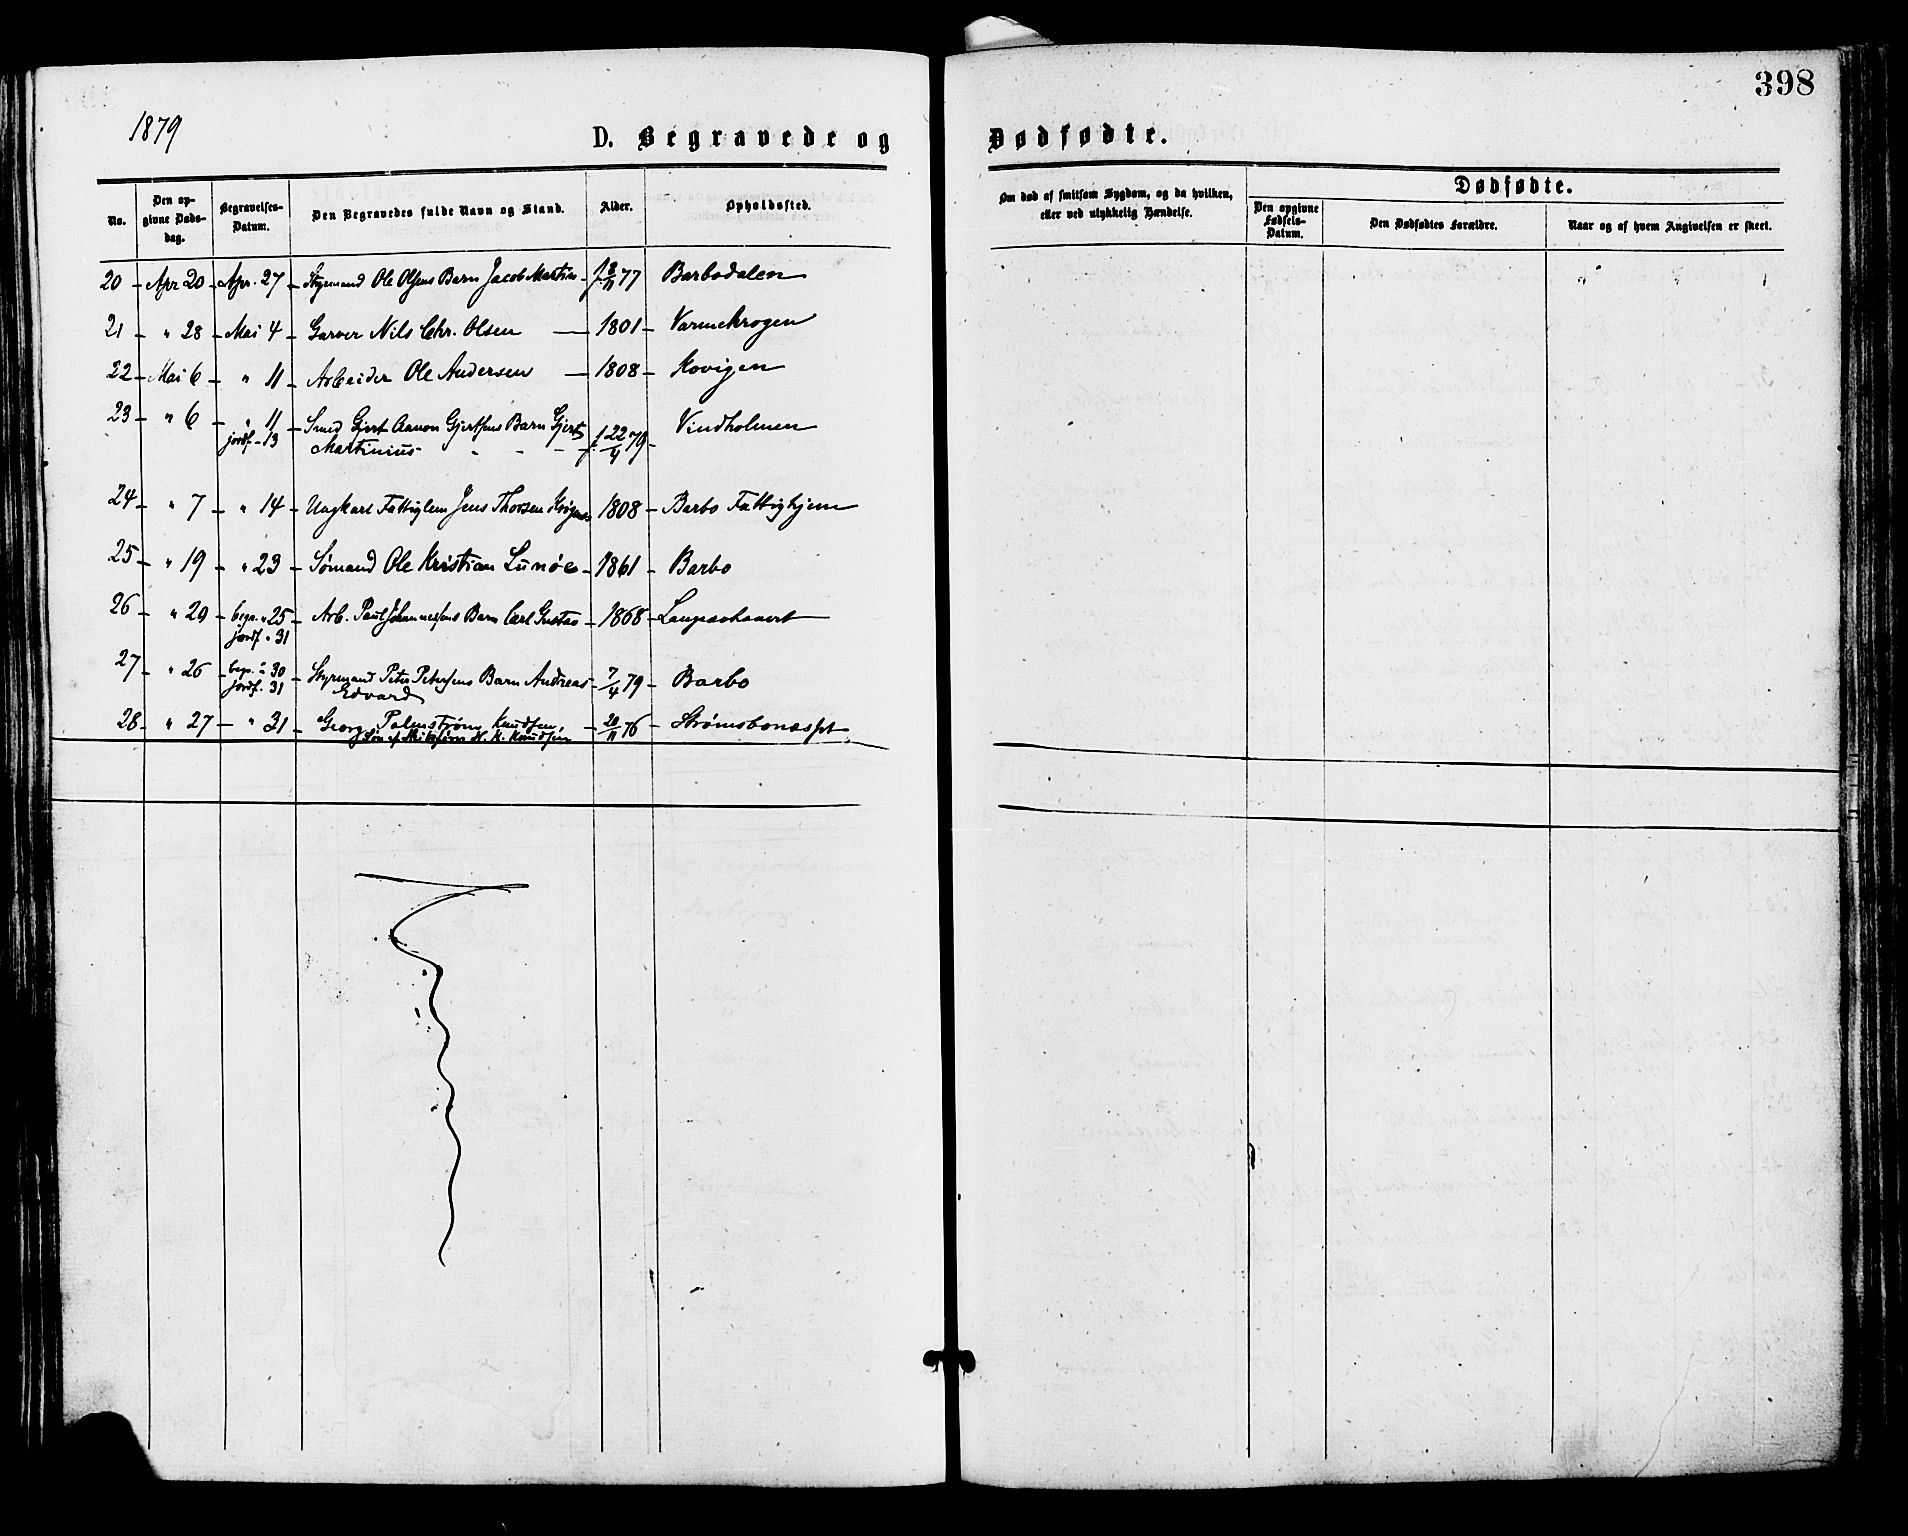 398
1879
D. Begravede og Dødfødte.
No.
Den opgivne Døds-dag.
Begravelses-Datum.
Den Begravedes fulde Navn og Stand.
Alder.
Opholdssted.
Om død af smitsom Sygdom, og da hvilken, eller ved ulykkelig Hændelse.
Dødfødte.
Den opgivne Fødsels-Datum.
Den Dødfødtes Forældre.
Naar og af hvem Angivelsen er skeet.
20 Apr 20 Apr. 27 Styrmand Ole Olsens Barn Jacob Martin f. 8/11 77 Barbodalen
21 " 28 Mai 4 Garver Nils Chr. Olsen 1801 Varmekrogen
22 Mai 6 " 11 Arbeider Ole Andersen 1808 Kovigen
23 " 6 " 11 Smed Gjert Aanon Gjertsens Barn Gjert Vindholmen
jordf. 13 Martinius f. 22/4 79
24 " 7 " 14 Ungkarl Fattiglem Jens Thorsen 1808 Barbo Fattighjem
25 " 19 " 23 Sømand Ole Kristian Lunøe 1861 Barbo
26 " 20 begr. " 25 Arb. Paul Johannessens Barn Carl Gustav 1868
jordf. " 31
27 " 26 begr. " 30 Styrmand Peter Petersens Barn Andreas 7/4 79 Barbo
jordf. 31 Edvard
28 " 27 " 31 Georg Palmstrøm Knudsen, 20/11 76 Strømsbonæsset
Søn af H. K. Knudsen